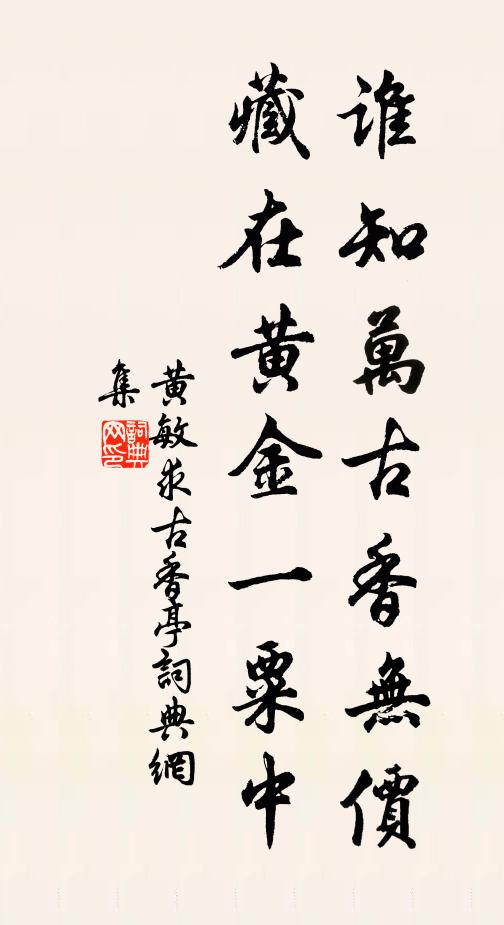 誰知萬古香無價
藏在黃金一粟中
黃敏求古香亭詞典網
集
詞典網印